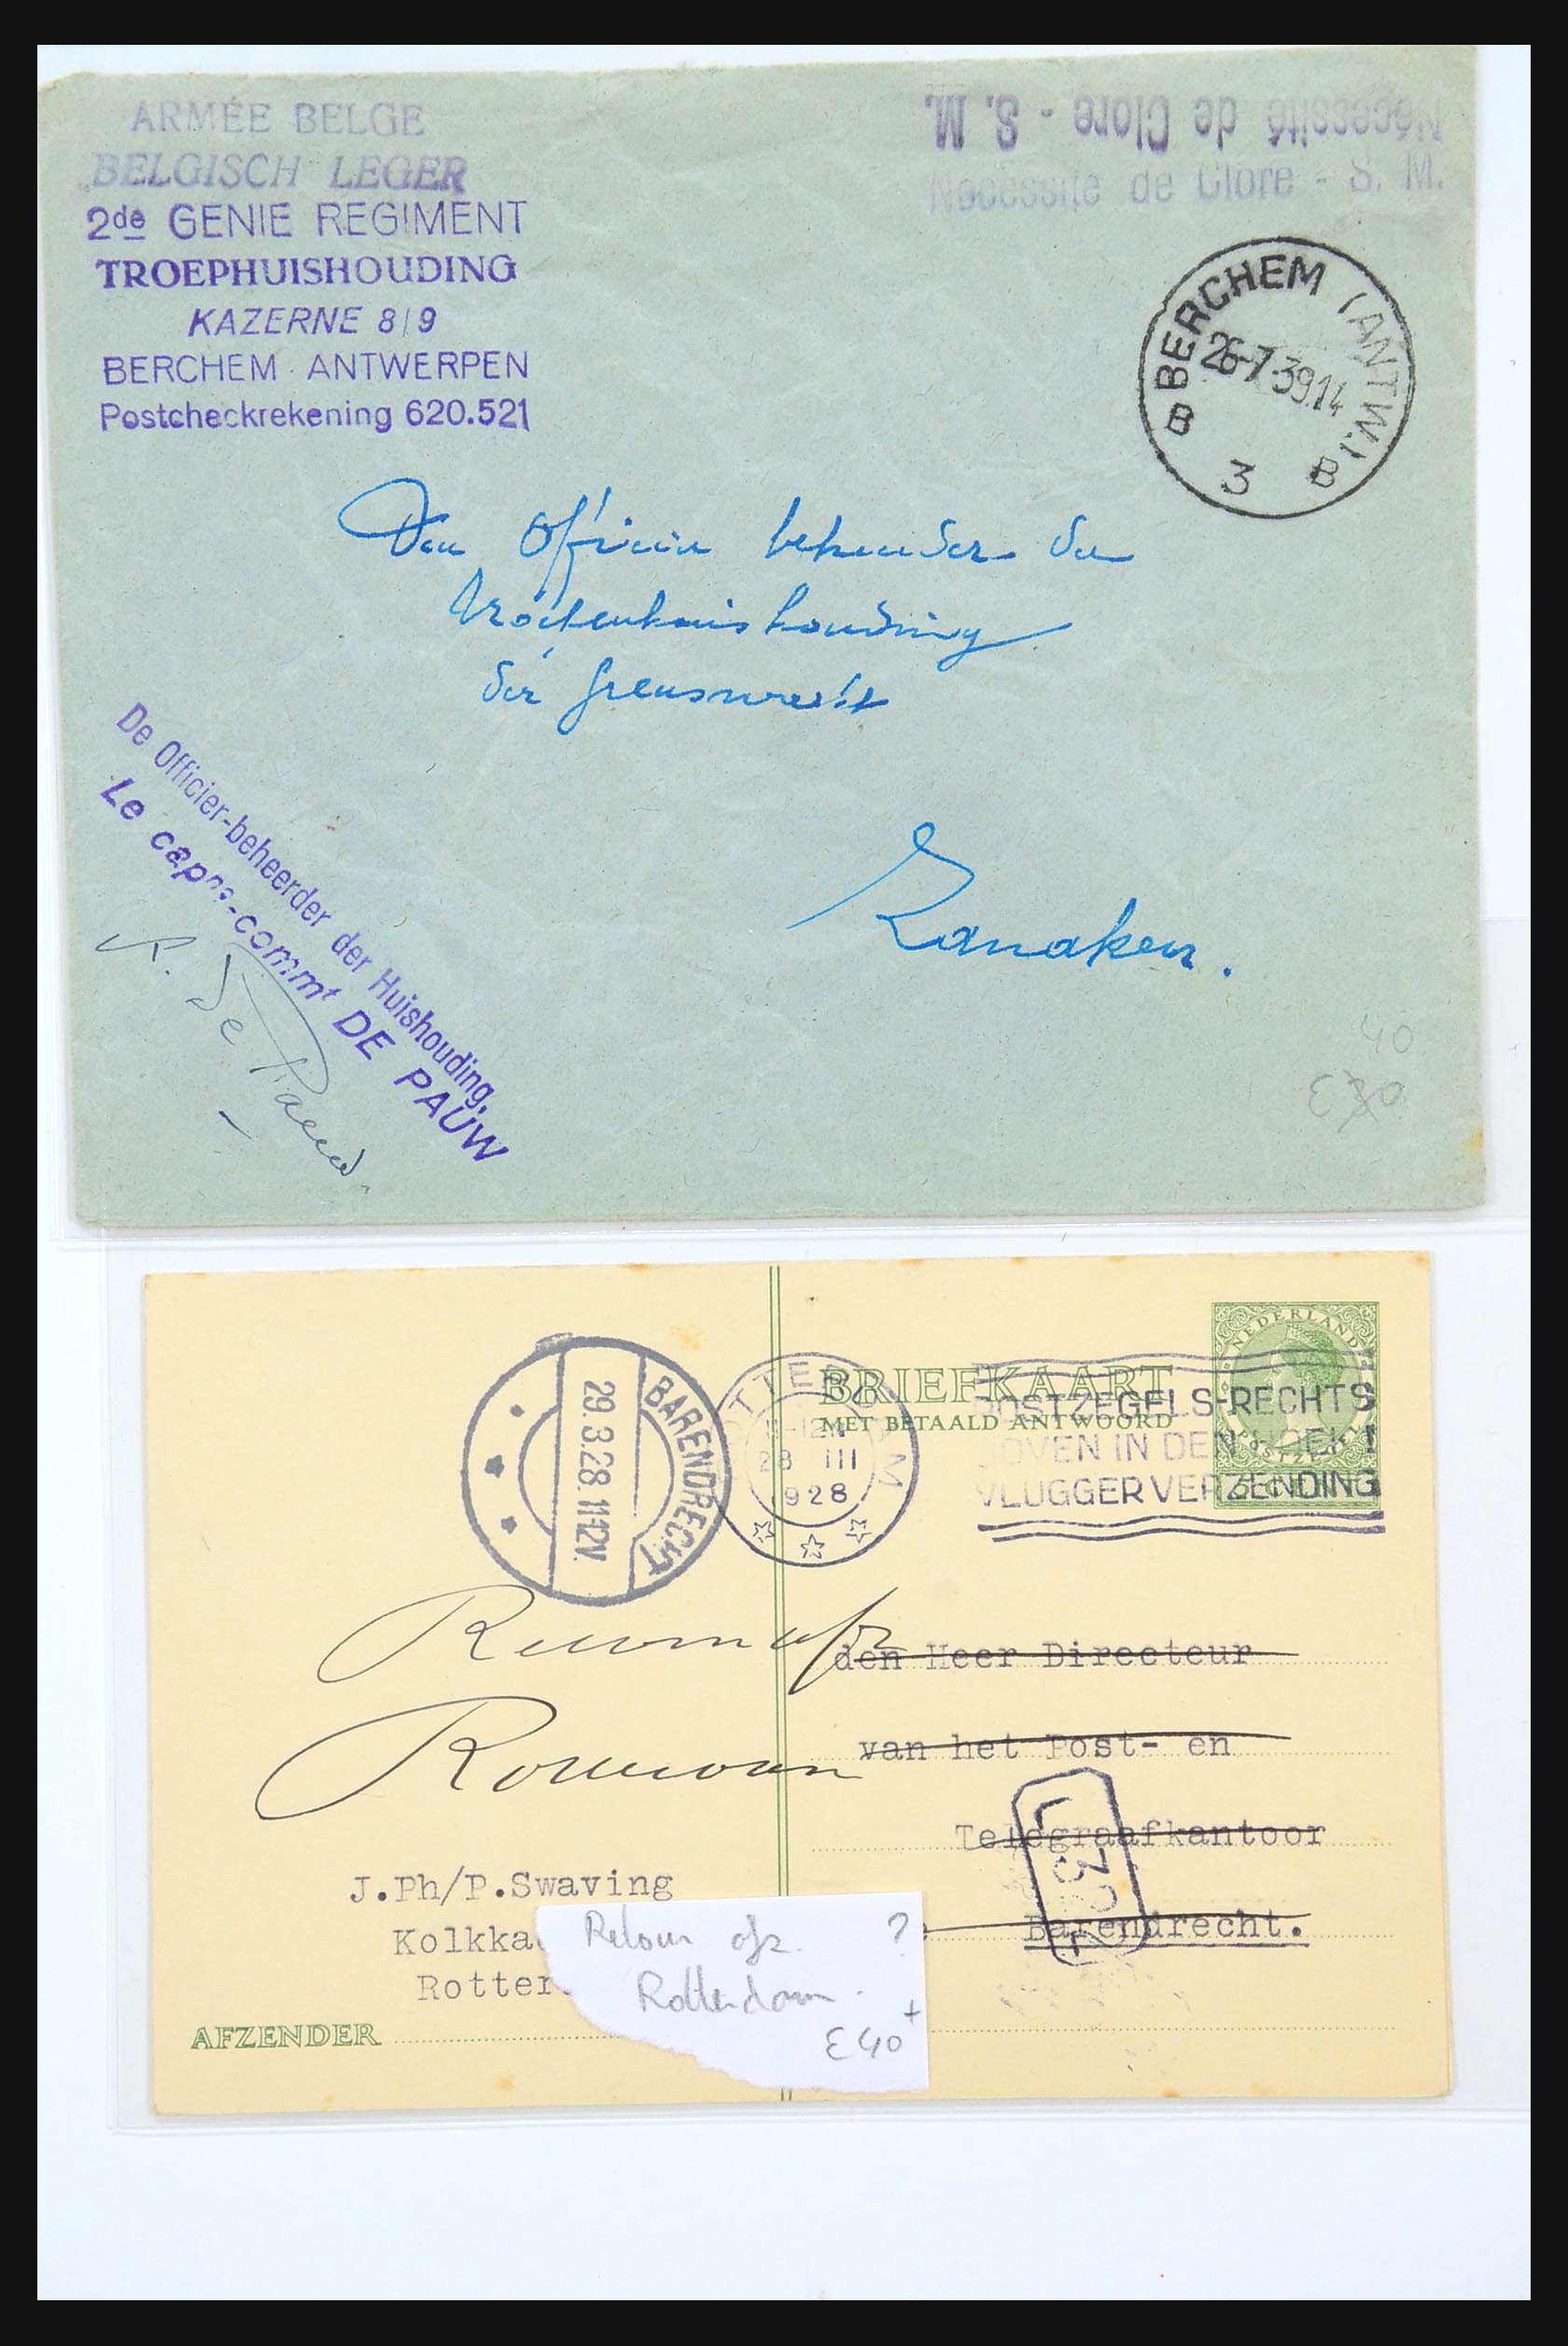 ARMÉE BELGE
BELGISCH LEGER
2de GENIE REGIMENT
TROEPHUISHOUDING
KAZERNE 8/9
BERCHEM - ANTWERPEN
Postcheckrekening 620.521
Nécessité de Clore - S. M.
Nécessité de Clore - S. M.
BERCHEM (ANTW.)
26-7-39.14
B 3 B
Den Officier beheerder der
Troepenhuishouding
der Grenswacht
Lanaken.
De Officier-beheerder der Huishouding,
Le capne-commt DE PAUW
De Pauw
40
E
BARENDRECHT
29.3.28.11-12V.
ROTTERDAM
28 III
1928
BRIEFKAART
MET BETAALD ANTWOORD
NEDERLAND
POSTZEGELS-RECHTS
BOVEN IN DEN HOEK!
VLUGGER VERZENDING
Retour afz
Rotterdam
den Heer Directeur
van het Post- en
Telegraafkantoor
Barendrecht.
J.Ph/P.Swaving
Kolkka
Rotter
Retour afz. ?
Rotterdam.
E 40+
AFZENDER